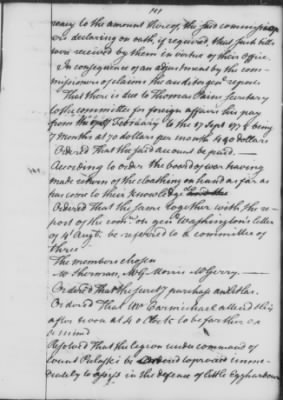 191
reasy to the amount thereof, the said commission
ers declaring on oath, if required, that such bills
were received by them in virtue of their office.
In consequence of an adjustment by the com-
missioners of claims the auditor gen¹ reports
That there is due to Thomas Paine secretary
to the committee for foreign affairs his pay
from the of February to the 17 Sept 1778 being
7 Months at 70 dollars per month 490 dollars
Ordered That the said account be paid.—
According to order the board of war having
made return of the cloathing on hand as far as
has come to their knowledge
Ordered That the same together with the re
port of the com^ee on gen¹ Washington's letter
of 4 Augt. be referred to a committee of
three
The members chosen
Mr Sherman, Mr G Morris Mr Gerry.—
Ordered That the
Ordered That Mr Carmichael attend this
after noon at 4 o Clock to be farther ex
amined
Resolved that the legion under command of
count Pulaski be ordered to proceed imme-
diately to assist in the defence of little Egg harbour